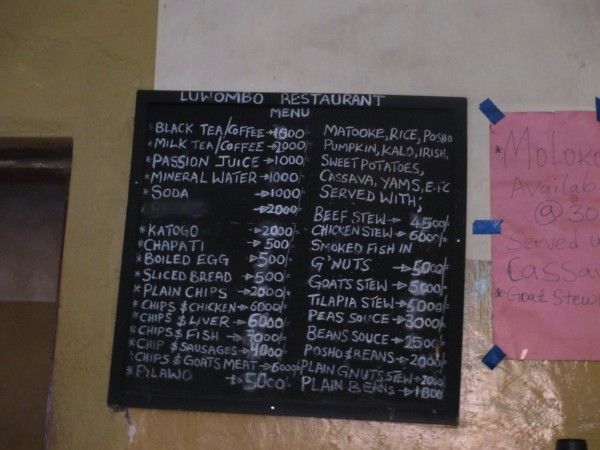 LUWOMBO RESTAURANT
MENU
*BLACK TEA/COFFEE→1000
*MILK TEA/COFFEE→2000
*PASSION JUICE→1000
*MINERAL WATER→1000
*SODA →1000
→2000
*KATOGO 2000
*CHAPATI →500
*BOILED EGG →500
*SLICED BREAD→500
*PLAIN CHIPS →2000
*CHIPS $ CHICKEN→6000
*CHIPS $ LIVER→6000
*CHIPS $ FISH→7000
*CHIP $ SAUSAGES→4000
*CHIPS $ GOATS MEAT→6000
*PILAWO →5000
MATOOKE, RICE, POSHO
PUMPKIN, KALO, IRISH,
SWEET POTATOES,
CASSAVA, YAMS, E.T.C
SERVED WITH;
BEEF STEW→4500/-
CHICKEN STEW→6000/-
SMOKED FISH IN
G'NUTS →5000/-
GOATS STEW→5000/-
TILAPIA STEW→5000/-
PEAS SOUCE→3000/-
BEANS SOUCE→2500/-
POSHO $ BEANS→2000/-
PLAIN GNUTS STEW→2000
PLAIN BEANS→1800
*MOLOKO
Availab
@ 30
Served w
Cassav
*Goat Stew